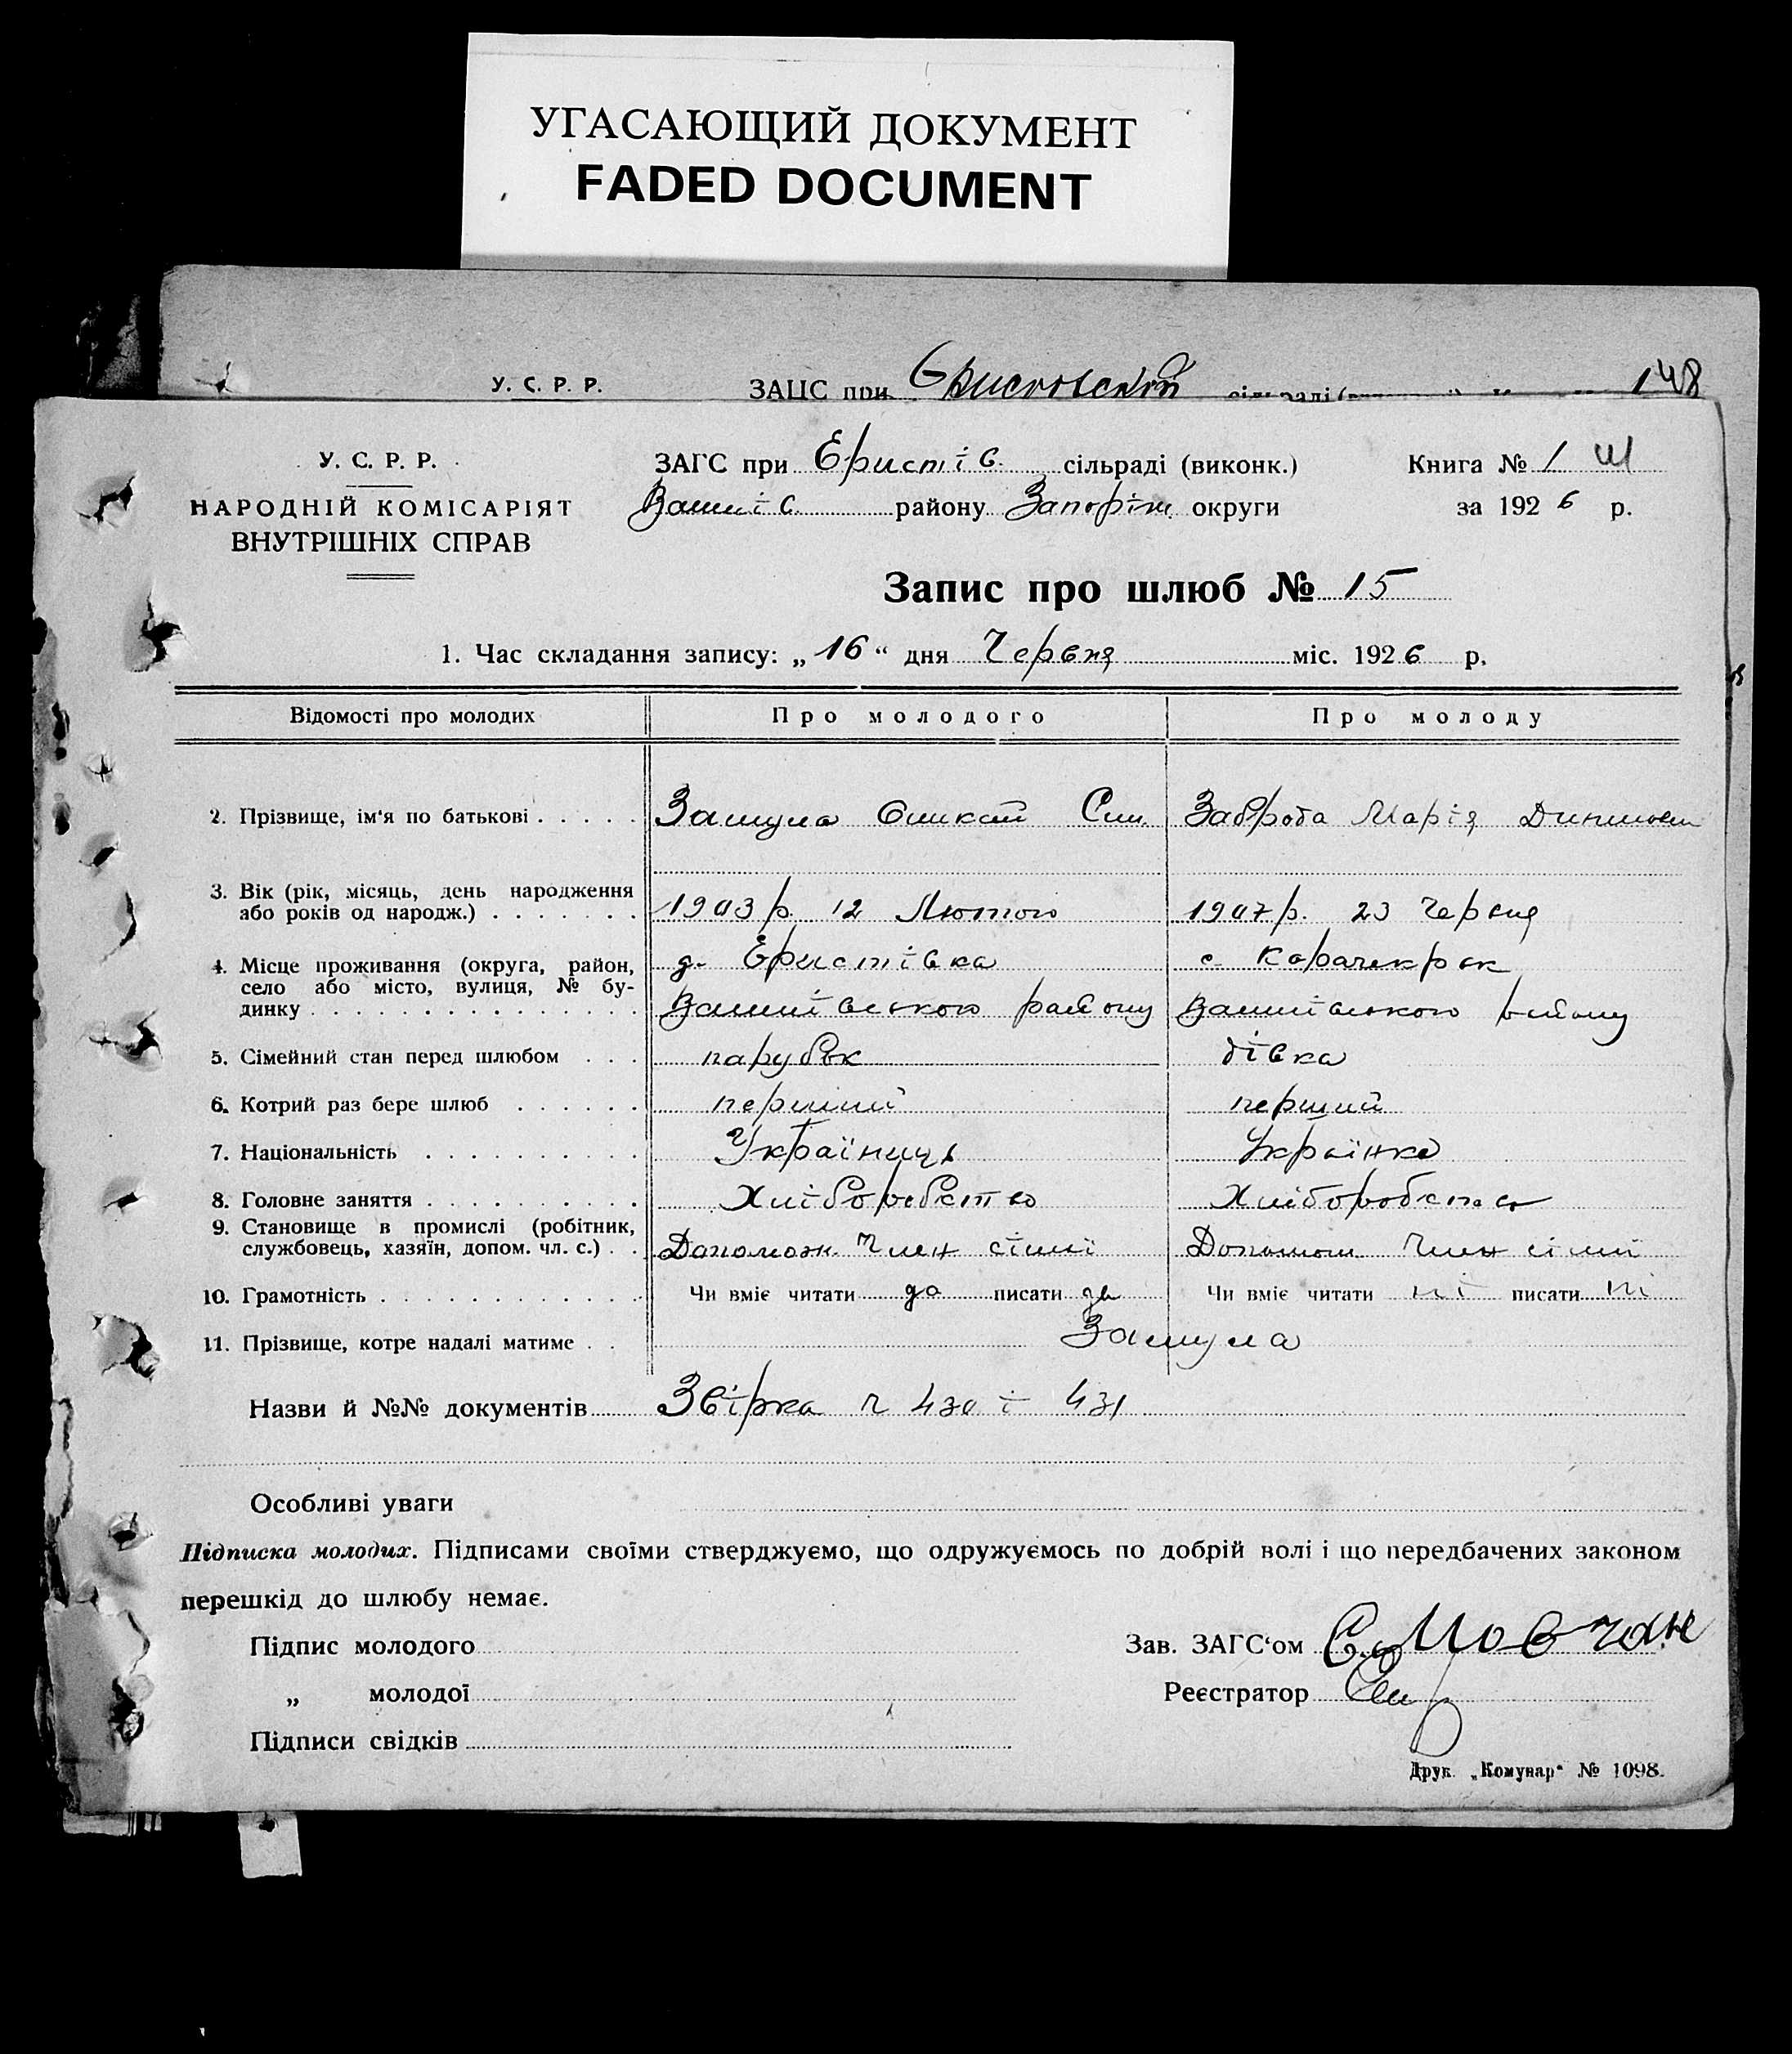 УГАСАЮЩИЙ ДОКУМЕНТ
FADED DOCUMENT
У. С. Р. Р. ЗАГС при 148
У. С. Р. Р. ЗАГС при Еристів. сільраді (виконк.) Книга № 1 Ш
НАРОДНІЙ КОМІСАРІЯТ району Запоріж. округи за 1926 р.
ВНУТРІШНІХ СПРАВ
Запис про шлюб № 15
1. Час складання запису: „16“ дня Червня міс. 1926 р.
Відомості про молодих Про молодого Про молоду
2. Прізвище, ім'я по батькові Замула Заброда Марія
3. Вік (рік, місяць, день народження
або років од народж.) 1903 р. 12 Лютого 1907 р. 23 Червня
4. Місце проживання (округа, район, д. Еристівка с. Карачекрак
село або місто, вулиця, № бу-
динку району району
5. Сімейний стан перед шлюбом парубок дівка
6. Котрий раз бере шлюб перший перший
7. Національність Україниць Українка
8. Головне заняття Хліборобство Хліборобство
9. Становище в промислі (робітник,
службовець, хазяїн, допом. чл. с.) Допомож. Член сімї Допомож. Член сімї
10. Грамотність Чи вміє читати да писати да Чи вміє читати ні писати ні
11. Прізвище, котре надалі матиме Замула
Назви й №№ документів Звірка ч 430 і 431
Особливі уваги
Підписка молодих. Підписами своїми стверджуємо, що одружуємось по добрій волі і що передбачених законом
перешкід до шлюбу немає.
Підпис молодого Зав. ЗАГС‘ом
„ молодої Реєстратор
Підписи свідків
Друк. „Комунар“ № 1098.